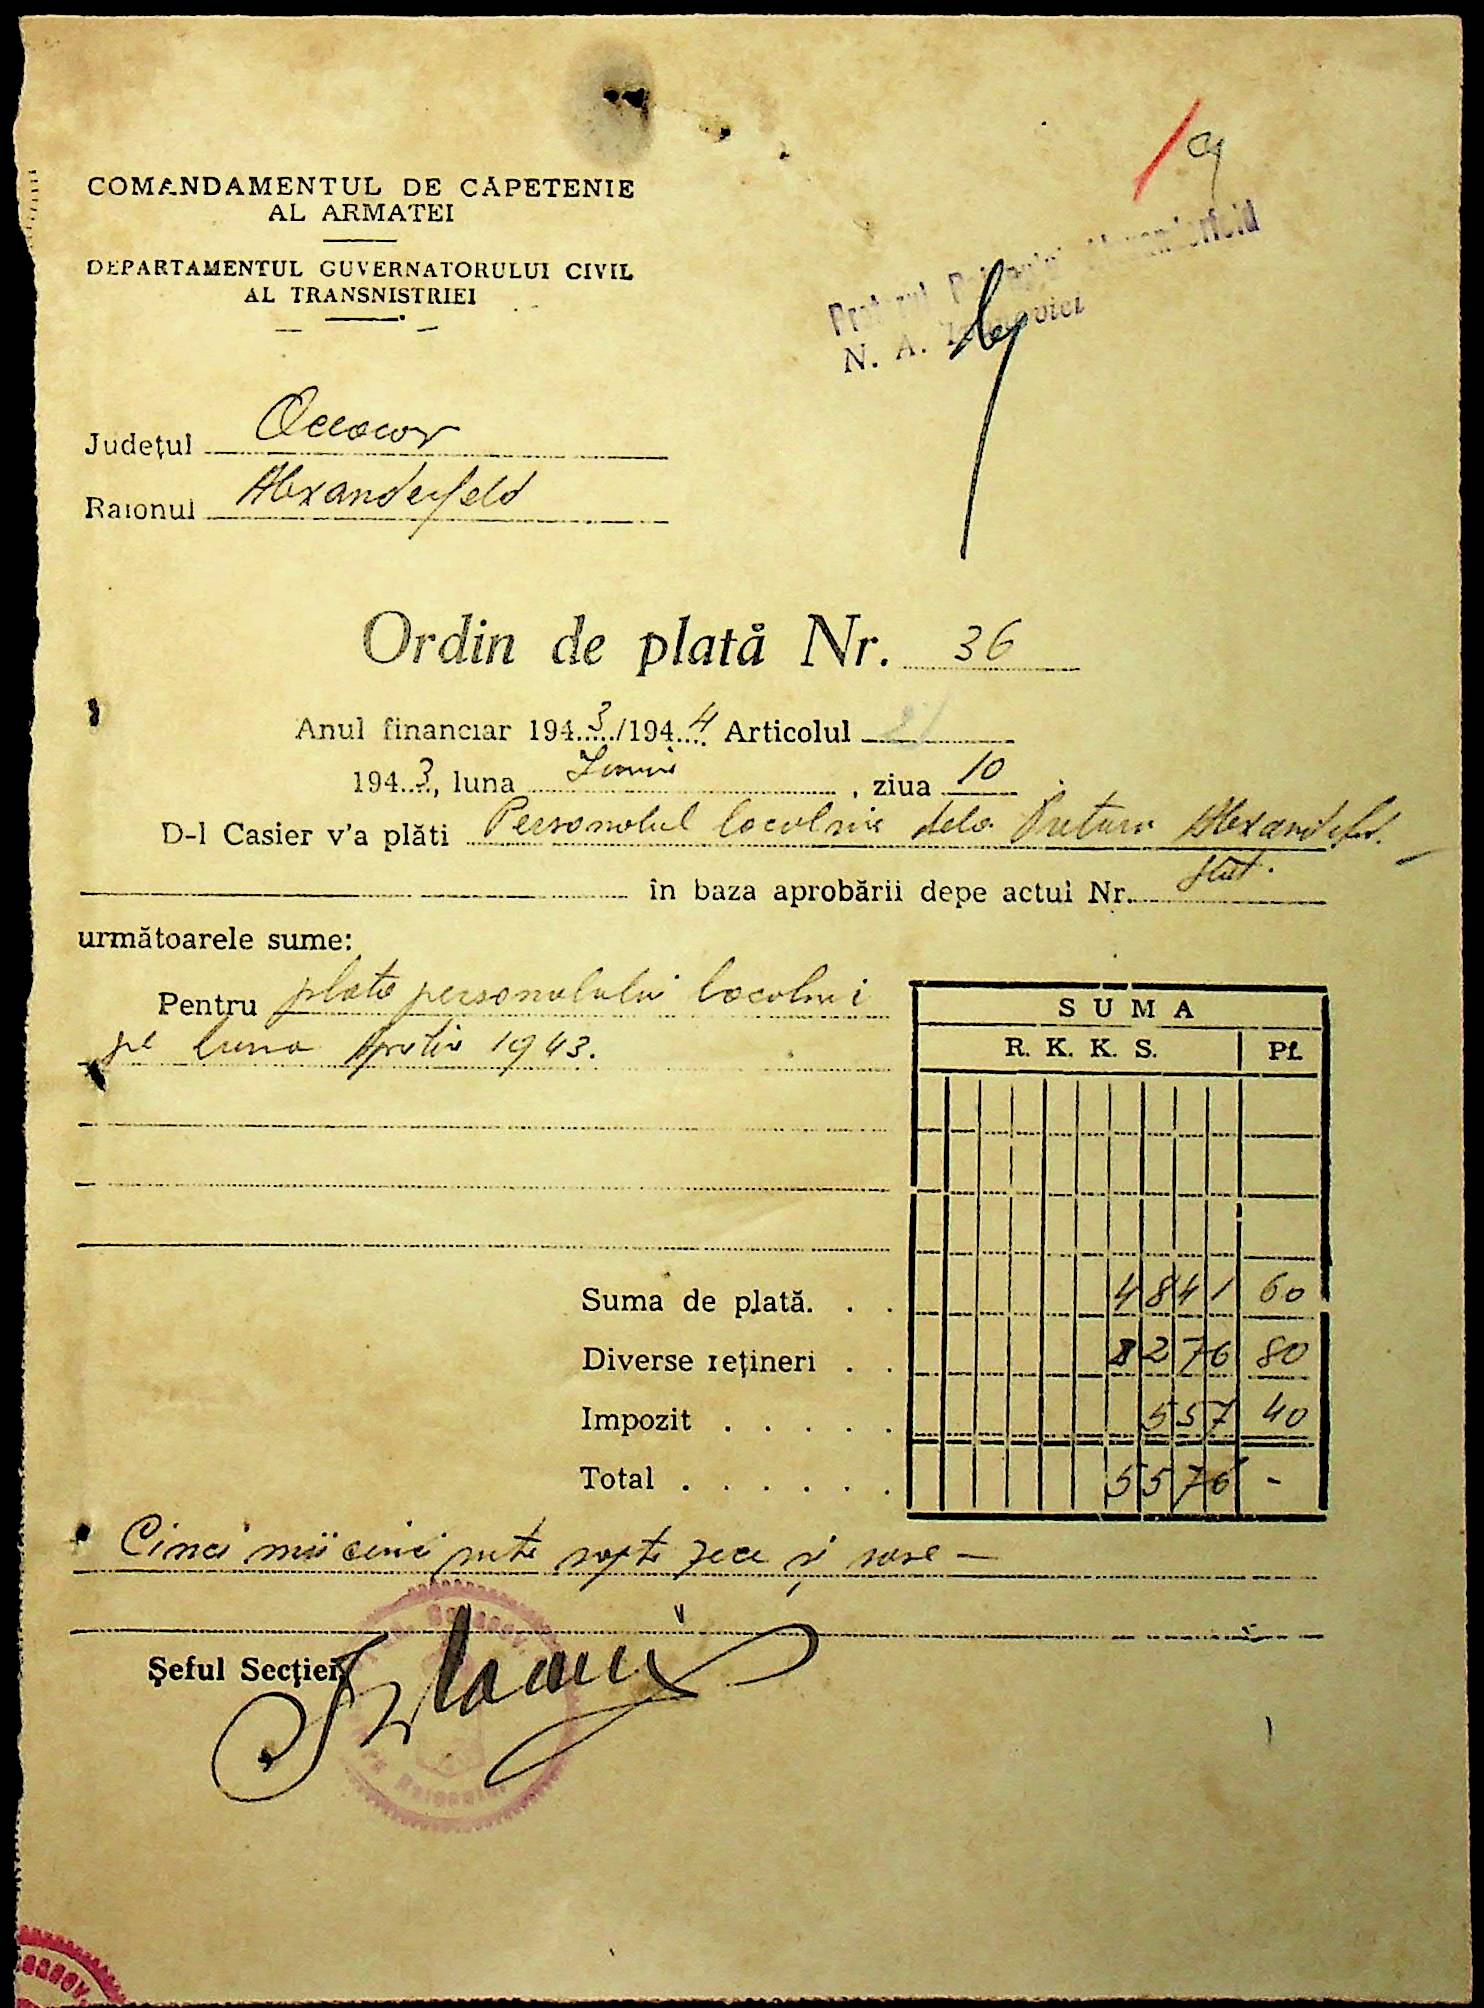 COMANDAMENTUL DE CAPETENIE
AL ARMATEI
DEPARTAMENTUL GUVERNATORULUI CIVIL
AL TRANSNISTRIEI
N. A.
Judeţul
Raionul Alexanderfeld
Ordin de plată Nr. 36
Anul financiar 1943/1944 Articolul 21
1943, luna Iunie, ziua 10
D-l Casier v'a plăti Personalul localnic dela Pretura Alexanderfd.
în baza aprobării depe actul Nr. stat.
următoarele sume:
Pentru plata personalului localnic
pe luna Aprilie 1943.
SUMA
R. K. K. S. Pf.
Suma de plată. . . 4841 60
Diverse reţineri . . 8276 80
Impozit . . . . . 557 40
Total . . . . . . 5576 -
Cinci mii cinci sute şapte zece şi şase —
Şeful Secţiei,